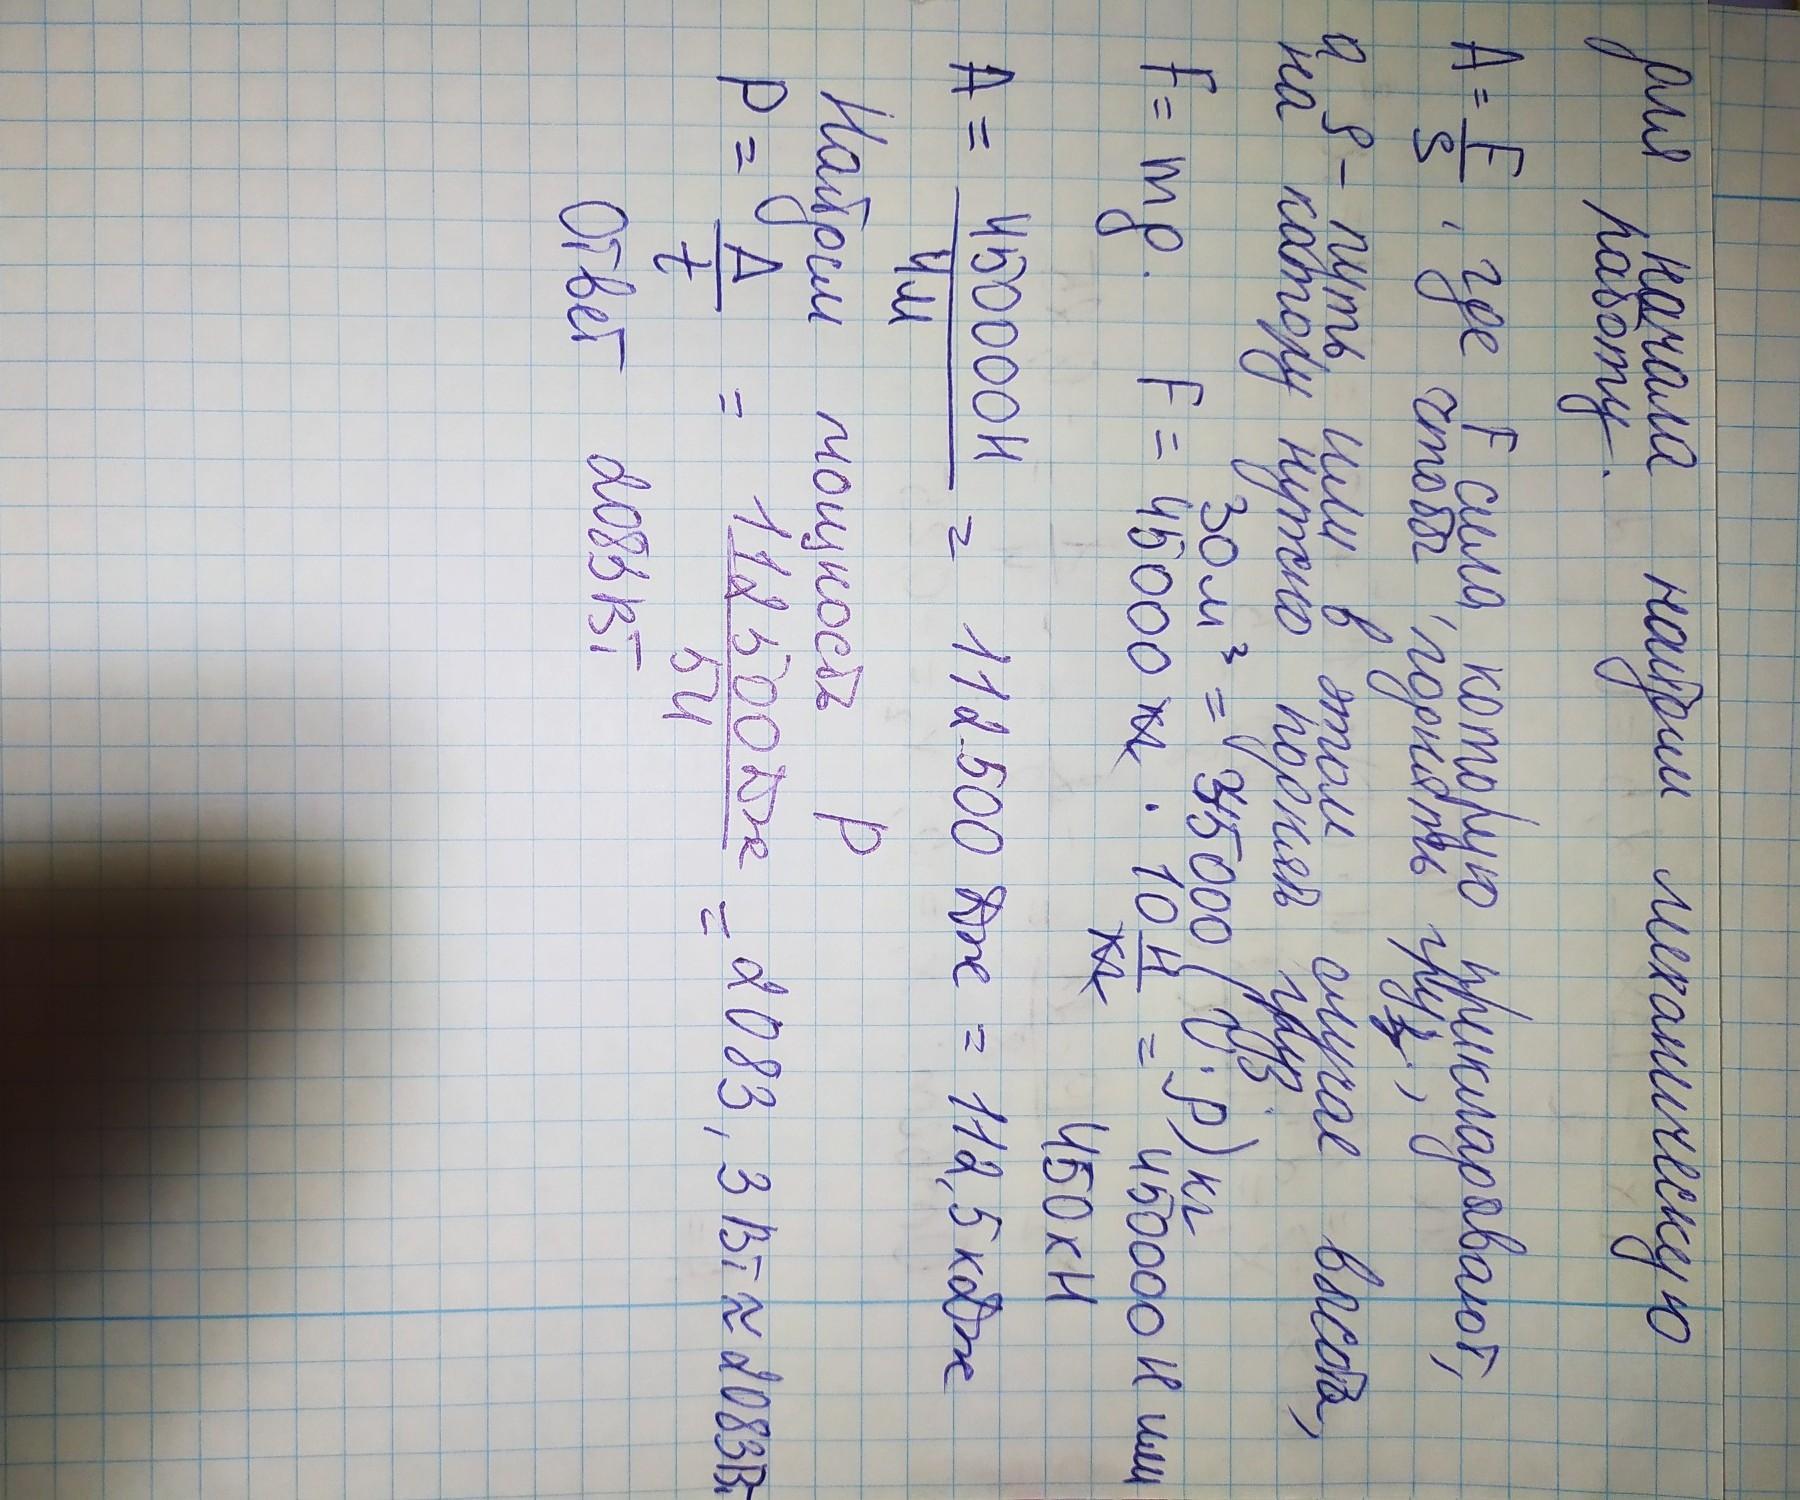 Для начала найдём механическую
работу.
A = F/S, где F сила, которую прикладывают,
чтобы поднять груз,
а S - путь, или в этом случае высота,
на котору нужно поднять груз.
30 м³ = 45000 (V·ρ) кг
F = mg. F = 45000 кг · 10 Н/кг = 450000 Н или
450 кН
A = 450000Н/4м = 112.500 Дж = 112,5 кДж
Найдём мощность P
P = A/t = 112500Дж/54 = 2083,3 Вт ≈ 2083Вт
Ответ 2083Вт